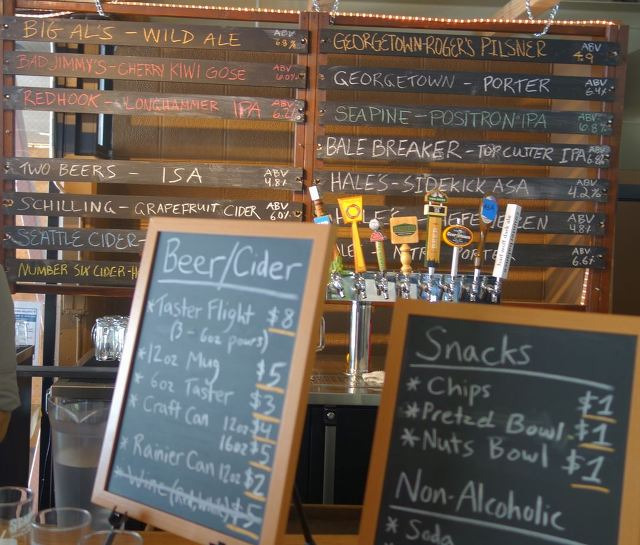 BIG AL'S - WILD ALE ABV 6.8%
BAD JIMMY'S - CHERRY KIWI GOSE ABV
REDHOOK - LONGHAMMER IPA ABV
TWO BEERS - ISA ABV 4.8%
SCHILLING - GRAPEFRUIT CIDER ABV 6.0%
SEATTLE CIDER-
NUMBER SIX CIDER-
GEORGETOWN-ROGER'S PILSNER ABV 4.9
GEORGETOWN - PORTER ABV
SEAPINE - POSITRON IPA ABV 6.8%
BALE BREAKER - TOPCUTTER IPA ABV 6.8%
HALE'S - SIDEKICK ASA ABV 4.2%
ABV 4.8%
ABV 6.6%
Beer/Cider
*Taster Flight $8
(3 - 6oz pours)
*12oz Mug $5
* 6oz Taster $3
* Craft Can 12oz $4
16oz $5
* Rainier Can 12oz $2
*Wine (Red, White) $5
Snacks
* Chips $1
*Pretzel Bowl $1
*Nuts Bowl $1
Non-Alcoholic
* Soda